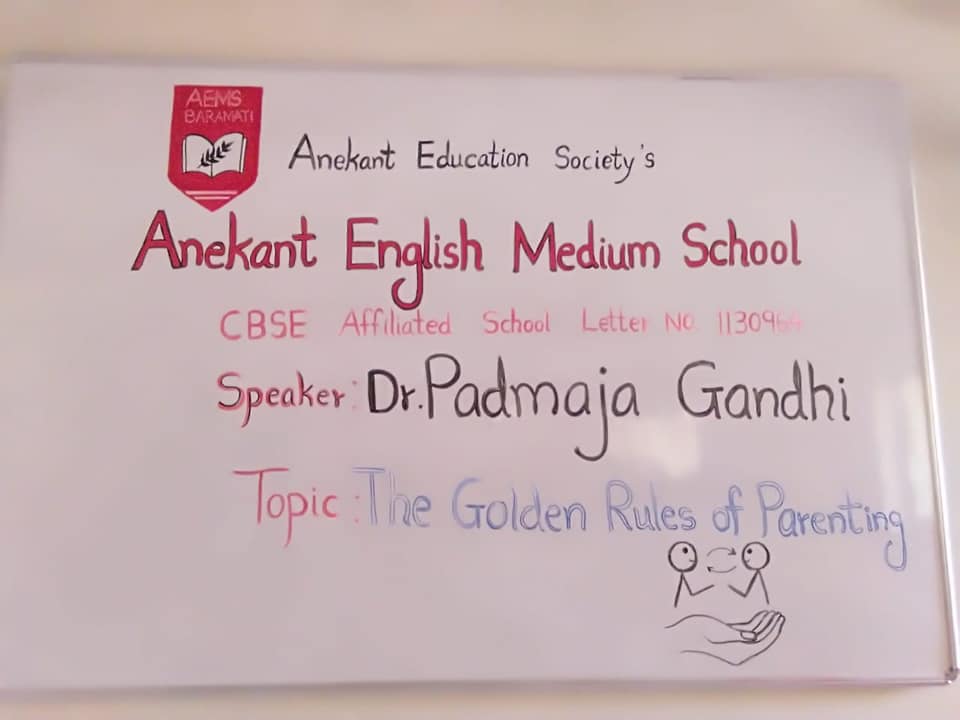 AEMS
BARAMATI
Anekant Education Society's
Anekant English Medium School
CBSE Affiliated School Letter No. 1130964
Speaker: Dr. Padmaja Gandhi
Topic: The Golden Rules of Parenting